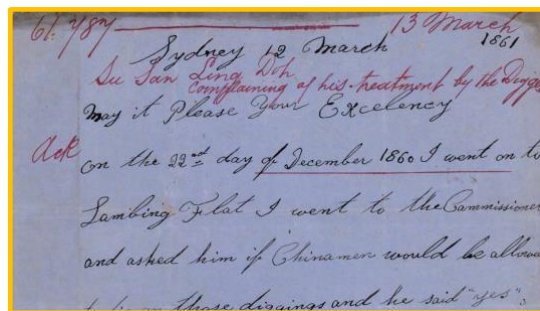 61.787 13 March
Sydney 12 March 1861
Su San Ling Doh
Complaining of his treatment by the Digge
May it Please Your Excelency
Ack
On the 22nd day of December 1860 I went on to
Lambing Flat I went to the Commissioner
and asked him if Chinamen would be allow
on those diggings and he said "yes";